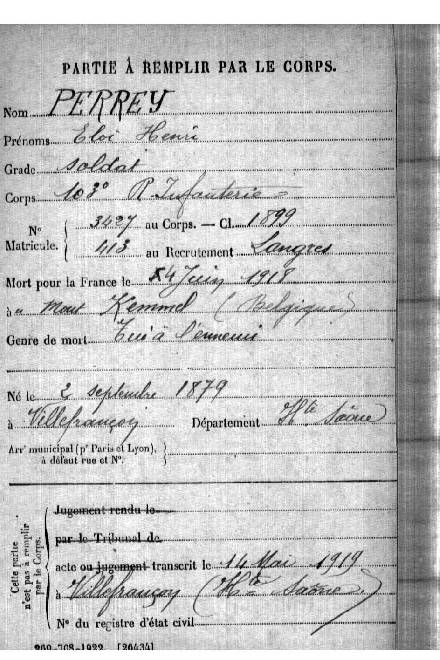 PARTIE À REMPLIR PAR LE CORPS.
Nom PERREY
Prénoms Eloi Henri
Grade soldat
Corps 103º R. Infanterie =
Nº 3427 au Corps. — Cl. 1899
Matricule. 413 au Recrutement Langres
Mort pour la France le 4 Juin 1918
à " Mont Kemmel (Belgique)
Genre de mort Tué à l'ennemi
Né le 2 septembre 1879
à Villefrancon Département Hte Saône
Arrt municipal (pr Paris et Lyon),
à défaut rue et Nº.
Cette partie
n'est pas à remplir
par le Corps.
Jugement rendu le
par le Tribunal de
acte ou jugement transcrit le 14 Mai 1919
à Villefrancon (Hte Saône)
Nº du registre d'état civil
269-708-1922. [26434]